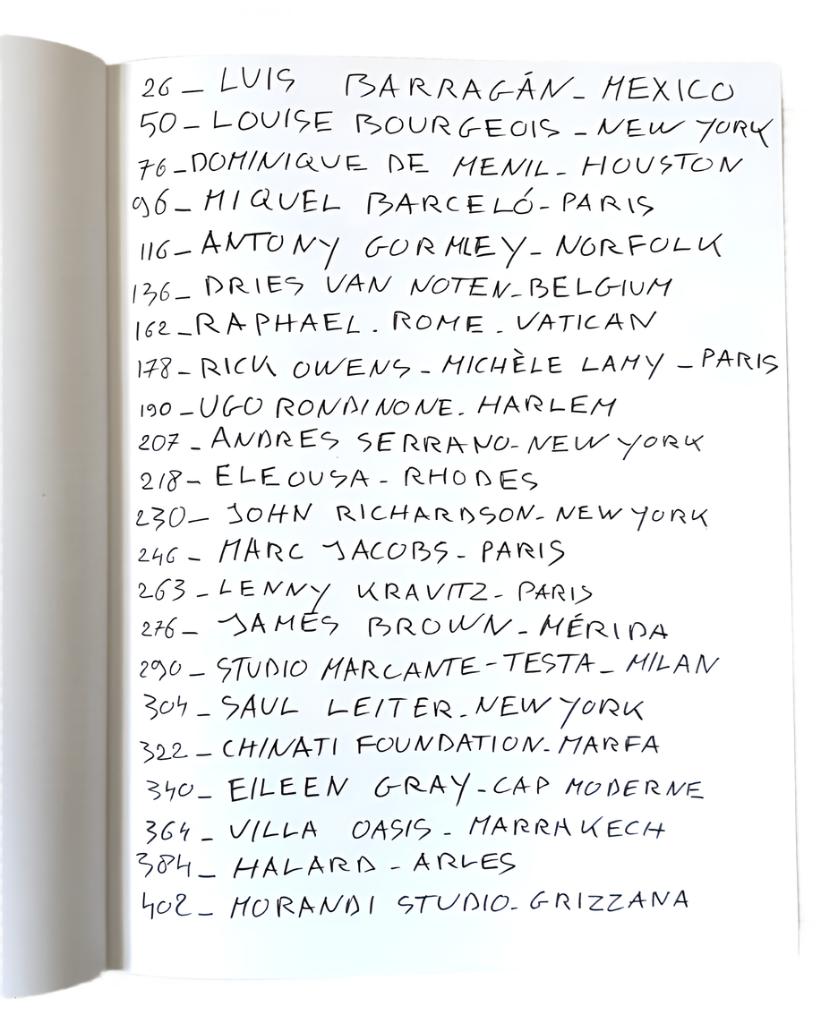 26_ LUIS BARRAGÁN_ MEXICO
50_ LOUISE BOURGEOIS _ NEW YORK
76_DOMINIQUE DE MENIL_ HOUSTON
96_ MIQUEL BARCELÓ_ PARIS
116_ ANTONY GORMLEY_ NORFOLK
136_ DRIES VAN NOTEN_BELGIUM
162_RAPHAEL. ROME. VATICAN
178_ RICK OWENS_ MICHÈLE LAMY _ PARIS
190_UGO RONDINONE. HARLEM
207_ ANDRES SERRANO_NEW YORK
218_ ELEOUSA_ RHODES
230_ JOHN RICHARDSON_ NEW YORK
246_ MARC JACOBS_ PARIS
263_LENNY KRAVITZ_ PARIS
276_ JAMES BROWN_ MÉRIDA
290_ STUDIO MARCANTE-TESTA_ MILAN
304_ SAUL LEITER_NEW YORK
322_ CHINATI FOUNDATION_MARFA
340_ EILEEN GRAY_CAP MODERNE
364_ VILLA OASIS_ MARRAKECH
384_ HALARD _ ARLES
402_ MORANDI STUDIO_ GRIZZANA